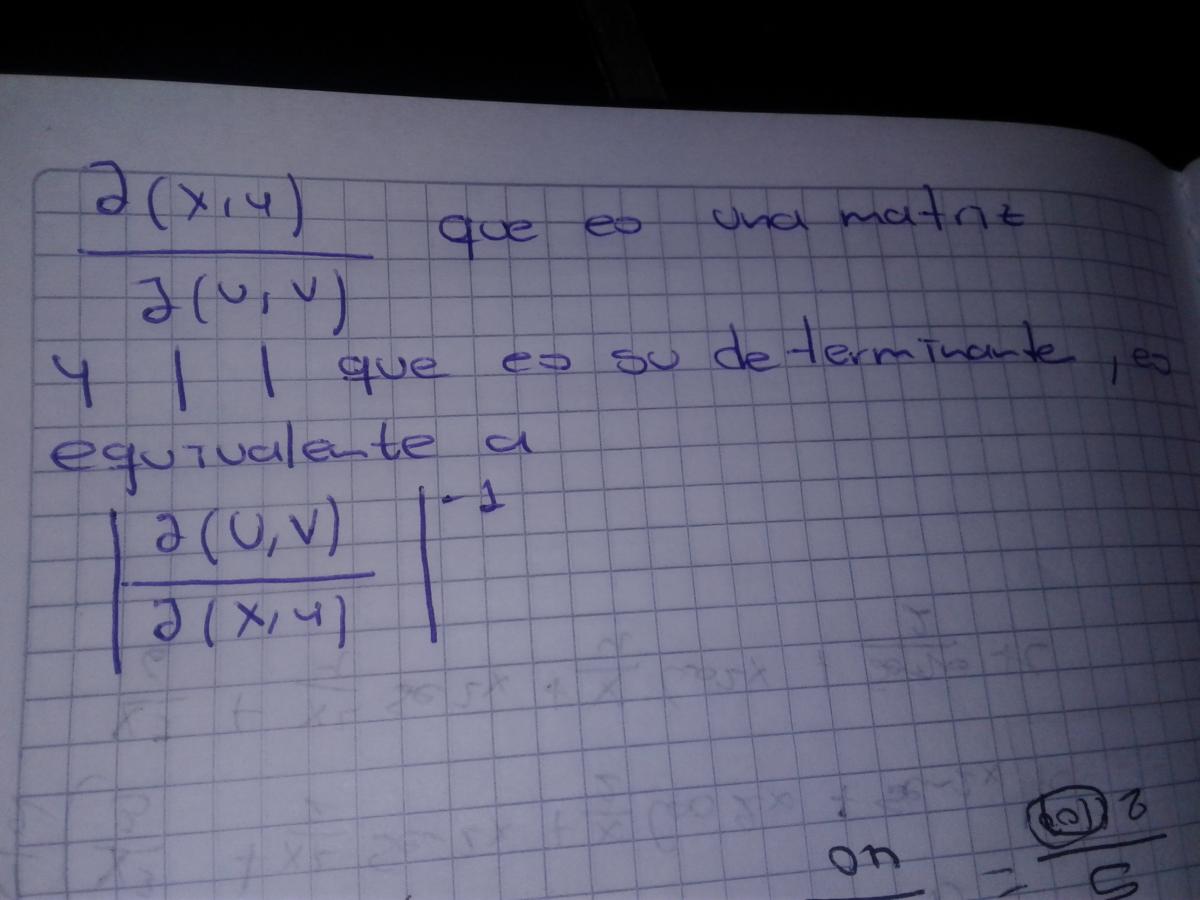 ∂(x,y)
∂(u,v)
que es una matriz
y | | que es su determinante, es
equivalente a
|∂(u,v)
∂(x,y)|⁻¹